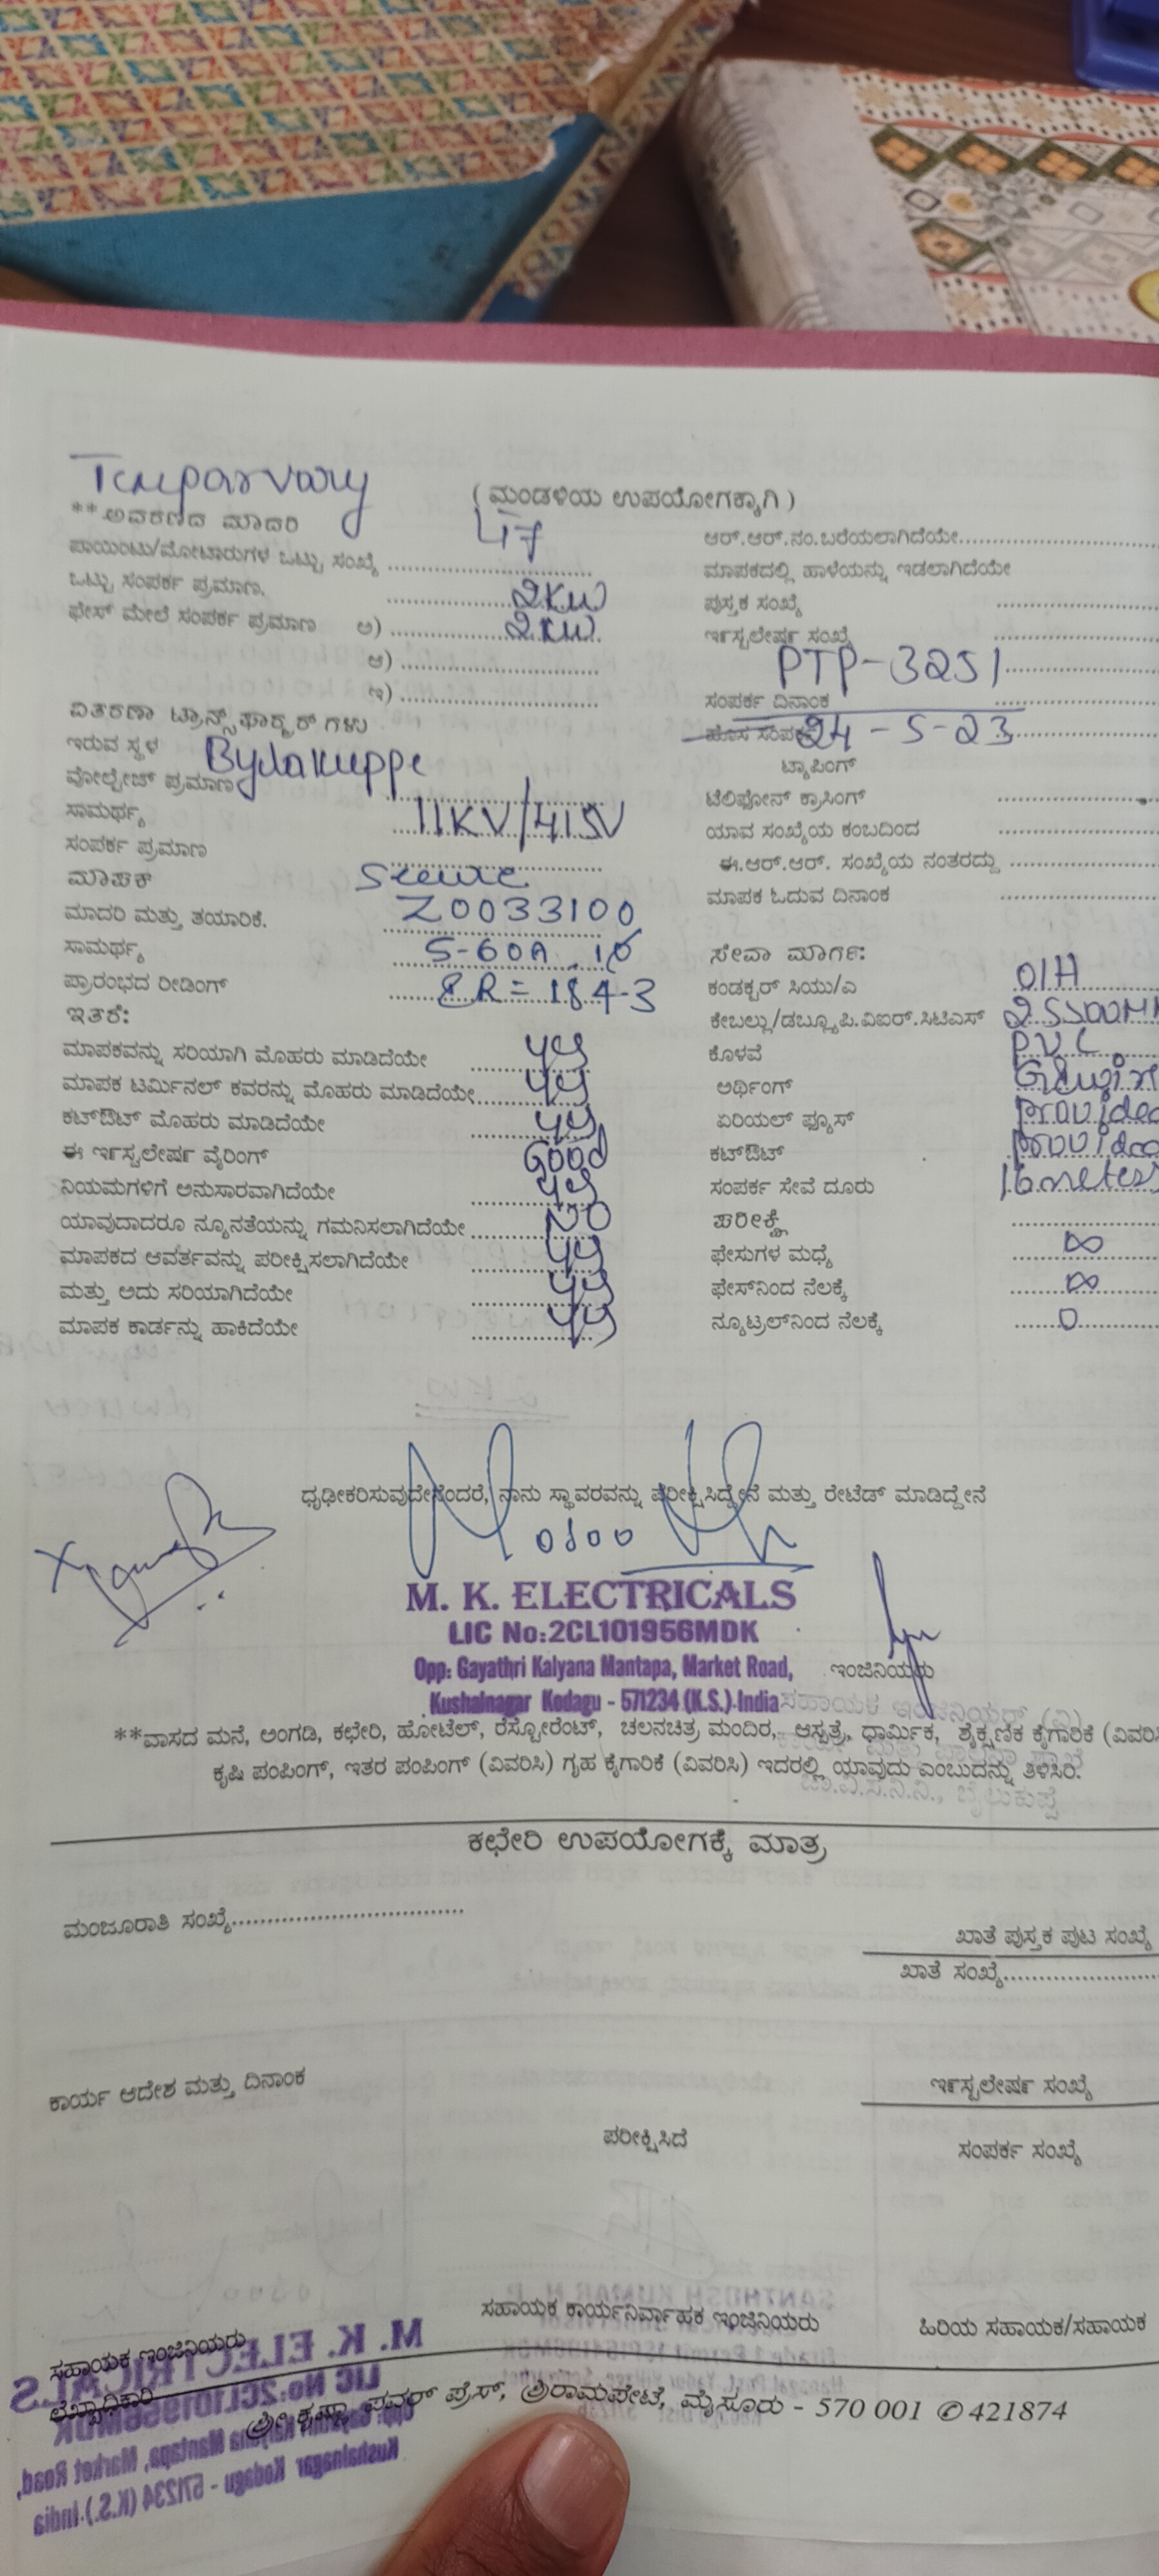 Temparvary
(ಮಂಡಳಿಯ ಉಪಯೋಗಕ್ಕಾಗಿ)
**ಆವರಣದ ಮಾದರಿ
47
ಪಾಯಿಂಟು/ಮೋಟಾರುಗಳ ಒಟ್ಟು ಸಂಖ್ಯೆ
ಒಟ್ಟು ಸಂಪರ್ಕ ಪ್ರಮಾಣ. 2KW
ಫೇಸ್ ಮೇಲೆ ಸಂಪರ್ಕ ಪ್ರಮಾಣ ಅ) 2KW.
ಆ)
ಇ)
ವಿತರಣಾ ಟ್ರಾನ್ಸ್‌ಫಾರ್ಮರ್ ಗಳು
ಇರುವ ಸ್ಥಳ Bylakuppe
ವೋಲ್ಟೇಜ್ ಪ್ರಮಾಣ
ಸಾಮರ್ಥ್ಯ 11KV/415V
ಸಂಪರ್ಕ ಪ್ರಮಾಣ
ಮಾಪಕ
ಮಾದರಿ ಮತ್ತು ತಯಾರಿಕೆ. Z0033100
ಸಾಮರ್ಥ್ಯ 5-60A
ಪ್ರಾರಂಭದ ರೀಡಿಂಗ್ = 184-3
ಇತರೆ:
ಮಾಪಕವನ್ನು ಸರಿಯಾಗಿ ಮೊಹರು ಮಾಡಿದೆಯೇ yes
ಮಾಪಕ ಟರ್ಮಿನಲ್ ಕವರನ್ನು ಮೊಹರು ಮಾಡಿದೆಯೇ yes
ಕಟ್‌ಔಟ್ ಮೊಹರು ಮಾಡಿದೆಯೇ yes
ಈ ಇನ್ಸ್ಟಲೇಷನ್ ವೈರಿಂಗ್ Good
ನಿಯಮಗಳಿಗೆ ಅನುಸಾರವಾಗಿದೆಯೇ yes
ಯಾವುದಾದರೂ ನ್ಯೂನತೆಯನ್ನು ಗಮನಿಸಲಾಗಿದೆಯೇ NO
ಮಾಪಕದ ಆವರ್ತವನ್ನು ಪರೀಕ್ಷಿಸಲಾಗಿದೆಯೇ yes
ಮತ್ತು ಅದು ಸರಿಯಾಗಿದೆಯೇ yes
ಮಾಪಕ ಕಾರ್ಡನ್ನು ಹಾಕಿದೆಯೇ yes
ಆರ್.ಆರ್.ನಂ.ಬರೆಯಲಾಗಿದೆಯೇ
ಮಾಪಕದಲ್ಲಿ ಹಾಳೆಯನ್ನು ಇಡಲಾಗಿದೆಯೇ
ಪುಸ್ತಕ ಸಂಖ್ಯೆ
ಇನ್ಸ್ಟಲೇಷನ್ ಸಂಖ್ಯೆ
PTP-3251
ಸಂಪರ್ಕ ದಿನಾಂಕ
ಹೊಸ ಸಂಪರ್ಕ 24-5-23
ಟ್ಯಾಪಿಂಗ್
ಟೆಲಿಫೋನ್ ಕ್ರಾಸಿಂಗ್
ಯಾವ ಸಂಖ್ಯೆಯ ಕಂಬದಿಂದ
ಈ.ಆರ್.ಆರ್. ಸಂಖ್ಯೆಯ ನಂತರದ್ದು
ಮಾಪಕ ಓದುವ ದಿನಾಂಕ
ಸೇವಾ ಮಾರ್ಗ:
ಕಂಡಕ್ಟರ್ ಸಿಯು/ಎ O/H
ಕೇಬಲ್ಲು/ಡಬ್ಲ್ಯೂ.ಪಿ.ವಿಐರ್.ಸಿಟಿಎಸ್
ಕೊಳವೆ PVC
ಅರ್ಥಿಂಗ್
ಏರಿಯಲ್ ಫ್ಯೂಸ್ provided
ಕಟ್‌ಔಟ್ provided
ಸಂಪರ್ಕ ಸೇವೆ ದೂರು 16 meters
ಪರೀಕ್ಷೆ
ಫೇಸುಗಳ ಮಧ್ಯೆ ∞
ಫೇಸ್‌ನಿಂದ ನೆಲಕ್ಕೆ ∞
ನ್ಯೂಟ್ರಲ್‌ನಿಂದ ನೆಲಕ್ಕೆ 0
ಧೃಢೀಕರಿಸುವುದೇನೆಂದರೆ, ನಾನು ಸ್ಥಾವರವನ್ನು ಪರೀಕ್ಷಿಸಿದ್ದೇನೆ ಮತ್ತು ರೇಟೆಡ್ ಮಾಡಿದ್ದೇನೆ
M. K. ELECTRICALS
LIC No:2CL101956MDK
Opp: Gayathri Kalyana Mantapa, Market Road,
Kushalnagar Kodagu - 571234 (K.S.) India
ಇಂಜಿನಿಯರು
ಸಹಾಯಕ ಇಂಜಿನಿಯರ್ (ವಿ)
ಚಾ.ವಿ.ಸ.ನಿ.ನಿ., ಬೈಲುಕುಪ್ಪೆ
**ವಾಸದ ಮನೆ, ಅಂಗಡಿ, ಕಛೇರಿ, ಹೋಟೆಲ್, ರೆಸ್ಟೋರೆಂಟ್, ಚಲನಚಿತ್ರ ಮಂದಿರ, ಆಸ್ಪತ್ರೆ, ಧಾರ್ಮಿಕ, ಶೈಕ್ಷಣಿಕ ಕೈಗಾರಿಕೆ (ವಿವರಿಸಿ
ಕೃಷಿ ಪಂಪಿಂಗ್, ಇತರ ಪಂಪಿಂಗ್ (ವಿವರಿಸಿ) ಗೃಹ ಕೈಗಾರಿಕೆ (ವಿವರಿಸಿ) ಇದರಲ್ಲಿ ಯಾವುದು ಎಂಬುದನ್ನು ತಿಳಿಸಿರಿ.
ಕಛೇರಿ ಉಪಯೋಗಕ್ಕೆ ಮಾತ್ರ
ಮಂಜೂರಾತಿ ಸಂಖ್ಯೆ
ಖಾತೆ ಪುಸ್ತಕ ಪುಟ ಸಂಖ್ಯೆ
ಖಾತೆ ಸಂಖ್ಯೆ
ಕಾರ್ಯ ಆದೇಶ ಮತ್ತು ದಿನಾಂಕ
ಇನ್ಸ್ಟಲೇಷನ್ ಸಂಖ್ಯೆ
ಪರೀಕ್ಷಿಸಿದೆ
ಸಂಪರ್ಕ ಸಂಖ್ಯೆ
ಸಹಾಯಕ ಇಂಜಿನಿಯರು
ಸಹಾಯಕ ಕಾರ್ಯನಿರ್ವಾಹಕ ಇಂಜಿನಿಯರು
ಹಿರಿಯ ಸಹಾಯಕ/ಸಹಾಯಕ
ಲೆಖ್ಖಾಧಿಕಾರಿ
ಶ್ರೀ ಕೃಷ್ಣಾ ಪವರ್ ಪ್ರೆಸ್, ಶ್ರೀರಾಮಪೇಟೆ, ಮೈಸೂರು - 570 001 ✆ 421874